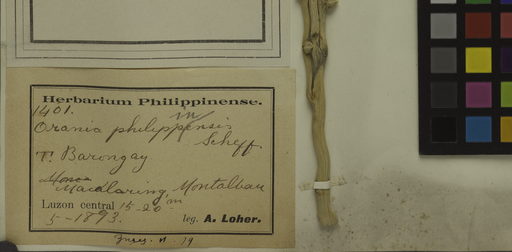 Herbarium Philippinense.
1401.
Orania philippensis
Scheff.
T. Barongay
Montalban
Luzon central 15-20 m
5-1893. leg. A. Loher.